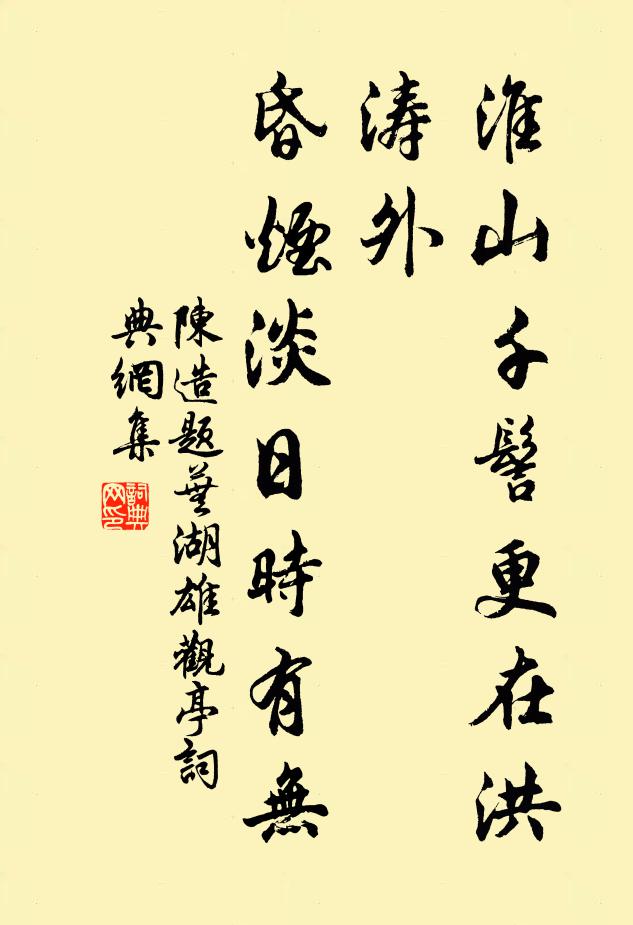 淮山千髻更在洪
涛外
昏煙淡日時有無
陳造題蕪湖雄觀亭詞
典網集
詞典
网印